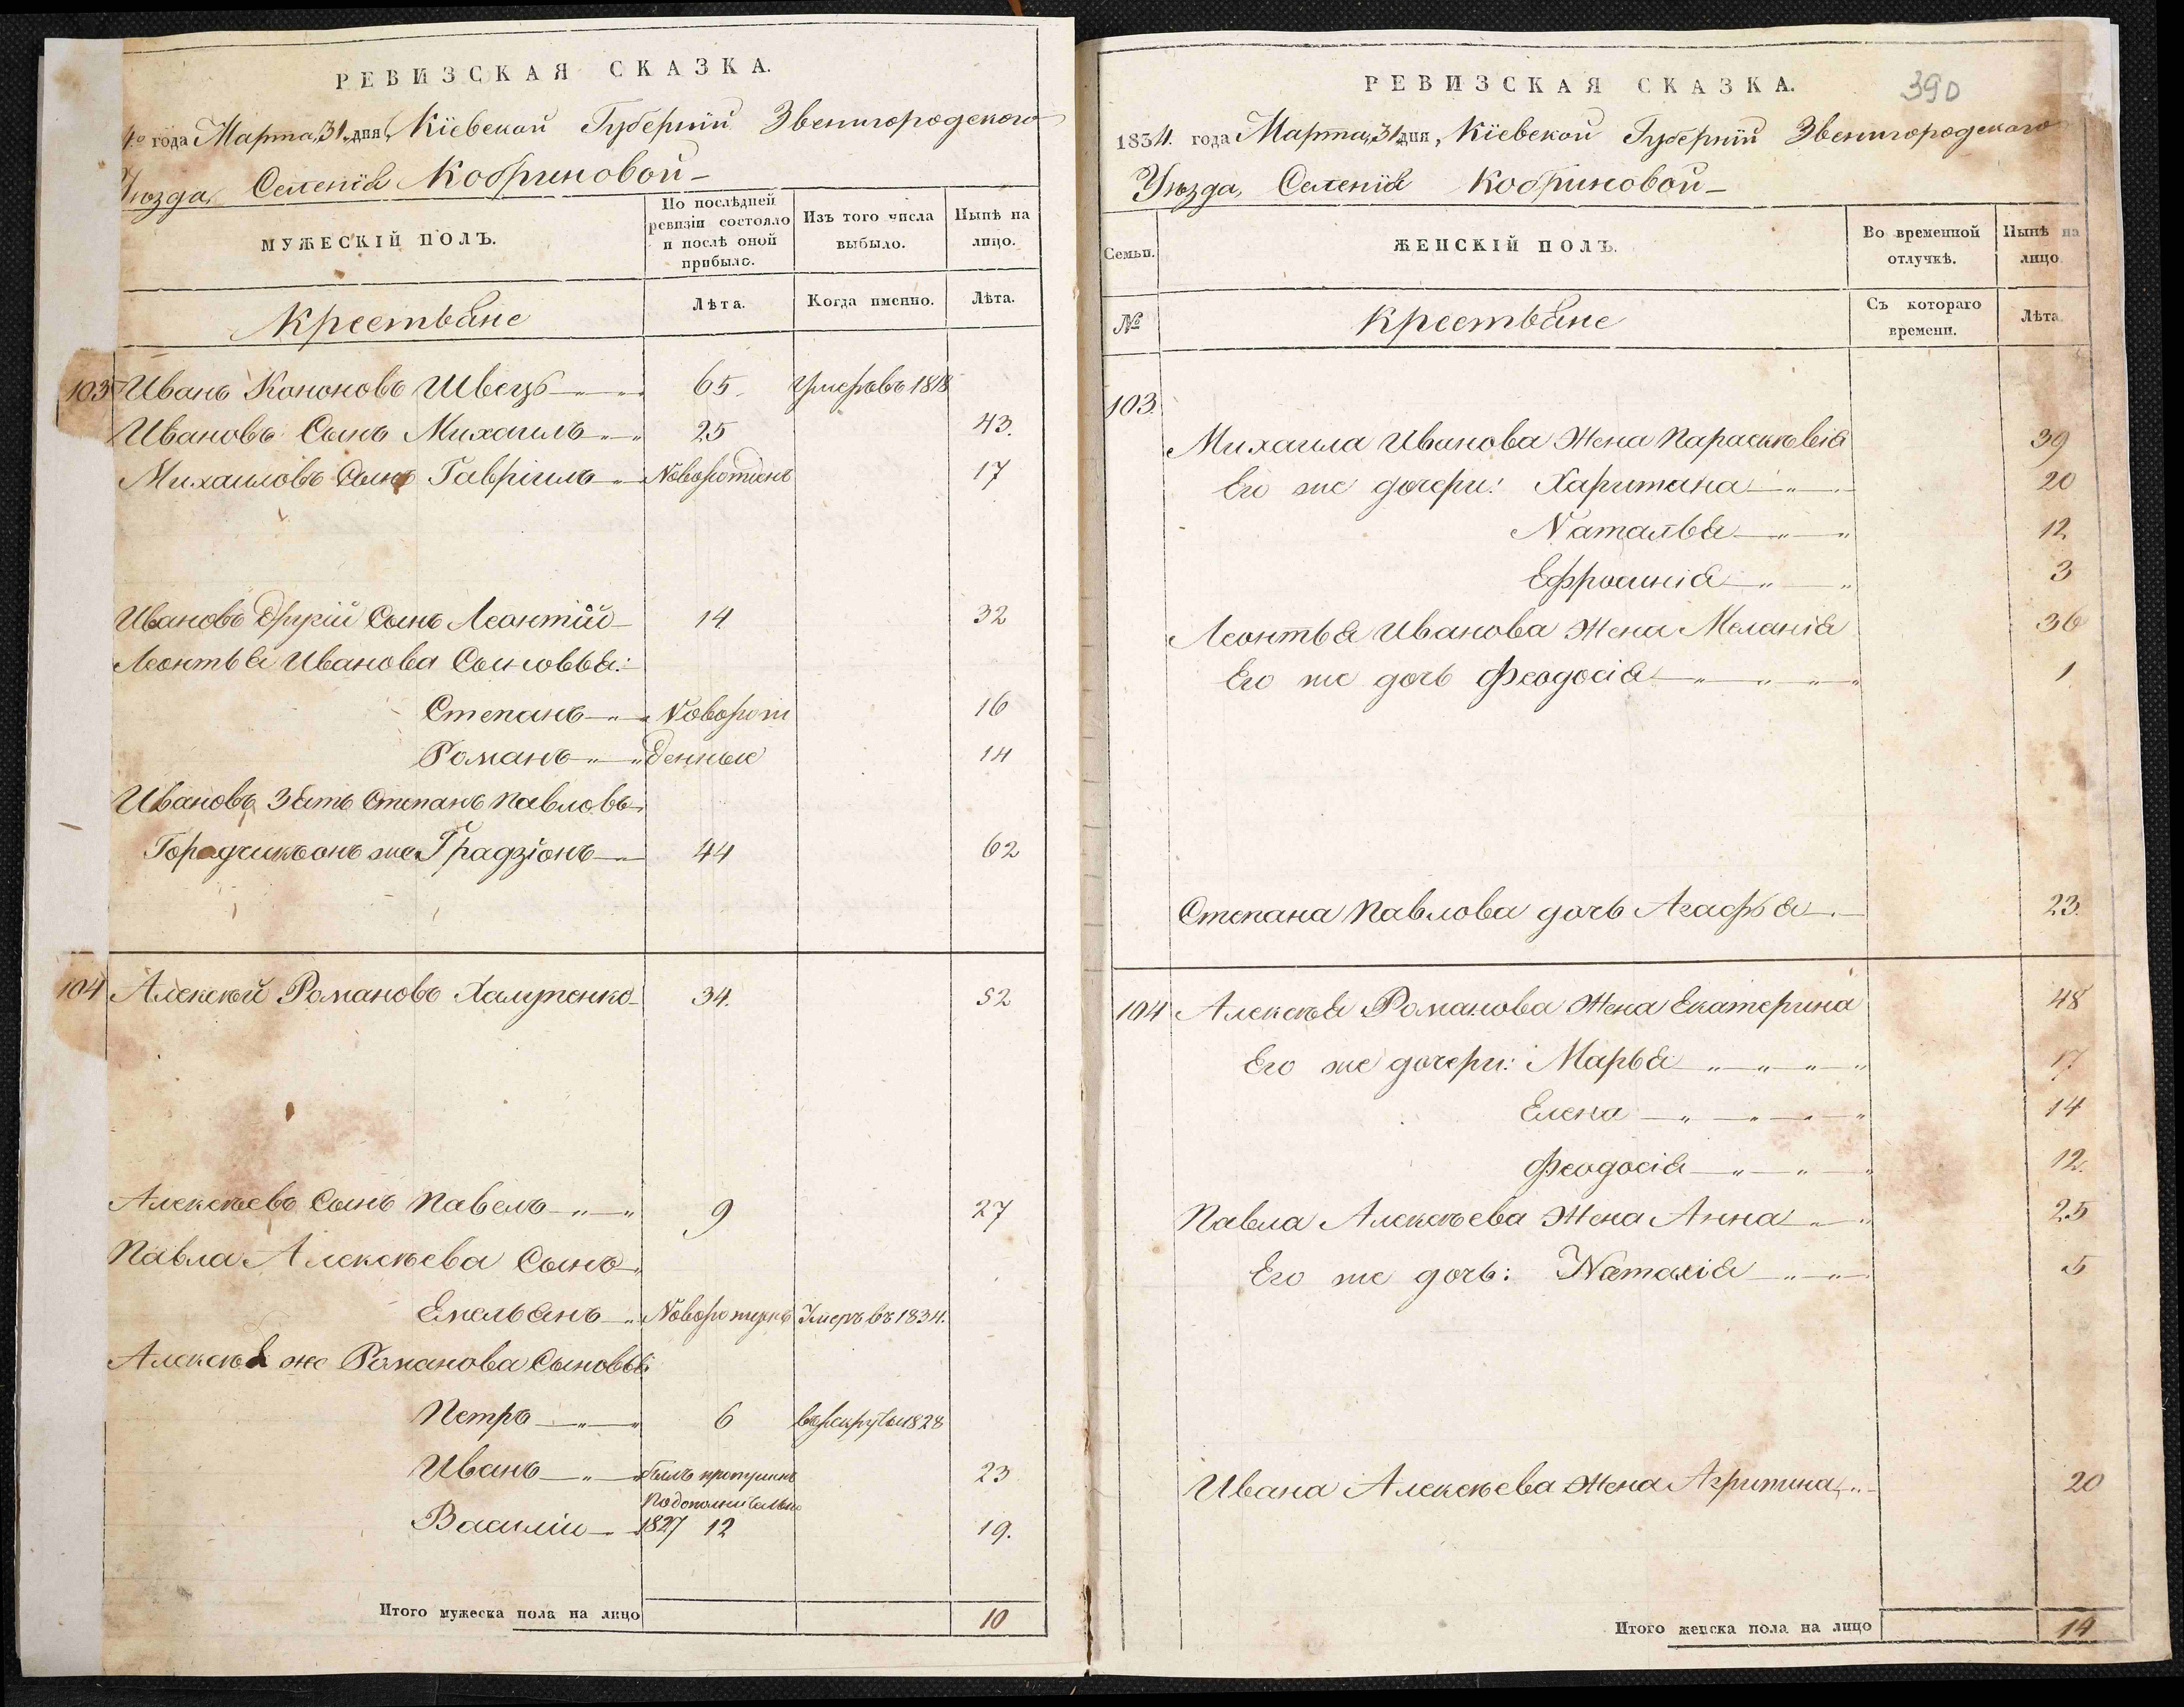 РЕВИЗСКАЯ СКАЗКА.
4го года Марта 31 дня, Кіевской Губерніи Звенигородскаго
Уѣзда, Селенія Кобриновой
МУЖЕСКІЙ ПОЛЪ.
По послѣдней ревизіи состояло и послѣ оной прибыло.
Изъ того числа выбыло.
Нынѣ на лицо.
Крестьяне
Лѣта.
Когда именно.
Лѣта.
103 Иванъ Кононовъ Швецъ 65. Умеръ въ 1818
Ивановъ Сынъ Михаилъ 25 43.
Михаиловъ Сынъ Гавріилъ Новорожденъ 17
Ивановъ Другій Сынъ Леонтій 14 32
Леонтья Иванова Сыновья:
Степанъ Новорож 16
Романъ денные 14
Ивановъ Зять Степанъ Павловъ
Городчикъ онъ же Градзіонъ 44 62
104 Алексѣй Романовъ Халупенко 34. 52
Алексѣевъ Сынъ Павелъ 9 27
Павла Алексѣева Сынъ
Емельянъ Новорожденъ Умеръ въ 1834.
Алексѣя же Романова Сыновья:
Петръ 6 Въ рекруты 1828
Иванъ былъ пропущенъ 23
По дополнительной
Василій 1827 12 19.
Итого мужеска пола на лицо 10
390
РЕВИЗСКАЯ СКАЗКА.
1834. года Марта 31 дня, Кіевской Губерніи Звенигородскаго
Уѣзда, Селенія Кобриновой
Семьи.
ЖЕНСКІЙ ПОЛЪ.
Во временной отлучкѣ.
Нынѣ на лицо
№
Крестьяне
Съ котораго времени.
Лѣта.
103.
Михаила Иванова Жена Параскевія 39
Его же дочери: Харитина 20
Наталья 12
Ефросинія 3
Леонтья Иванова Жена Меланія 36
Его же дочь Феодосія 1
Степана Павлова дочь Агафья 23.
104 Алексѣя Романова Жена Екатерина 48
Его же дочери: Марья 17
Елена 14
Феодосія 12.
Павла Алексѣева Жена Анна 25
Его же дочь: Наталія 5
Ивана Алексѣева Жена Агрипина 20
Итого женска пола на лицо 14